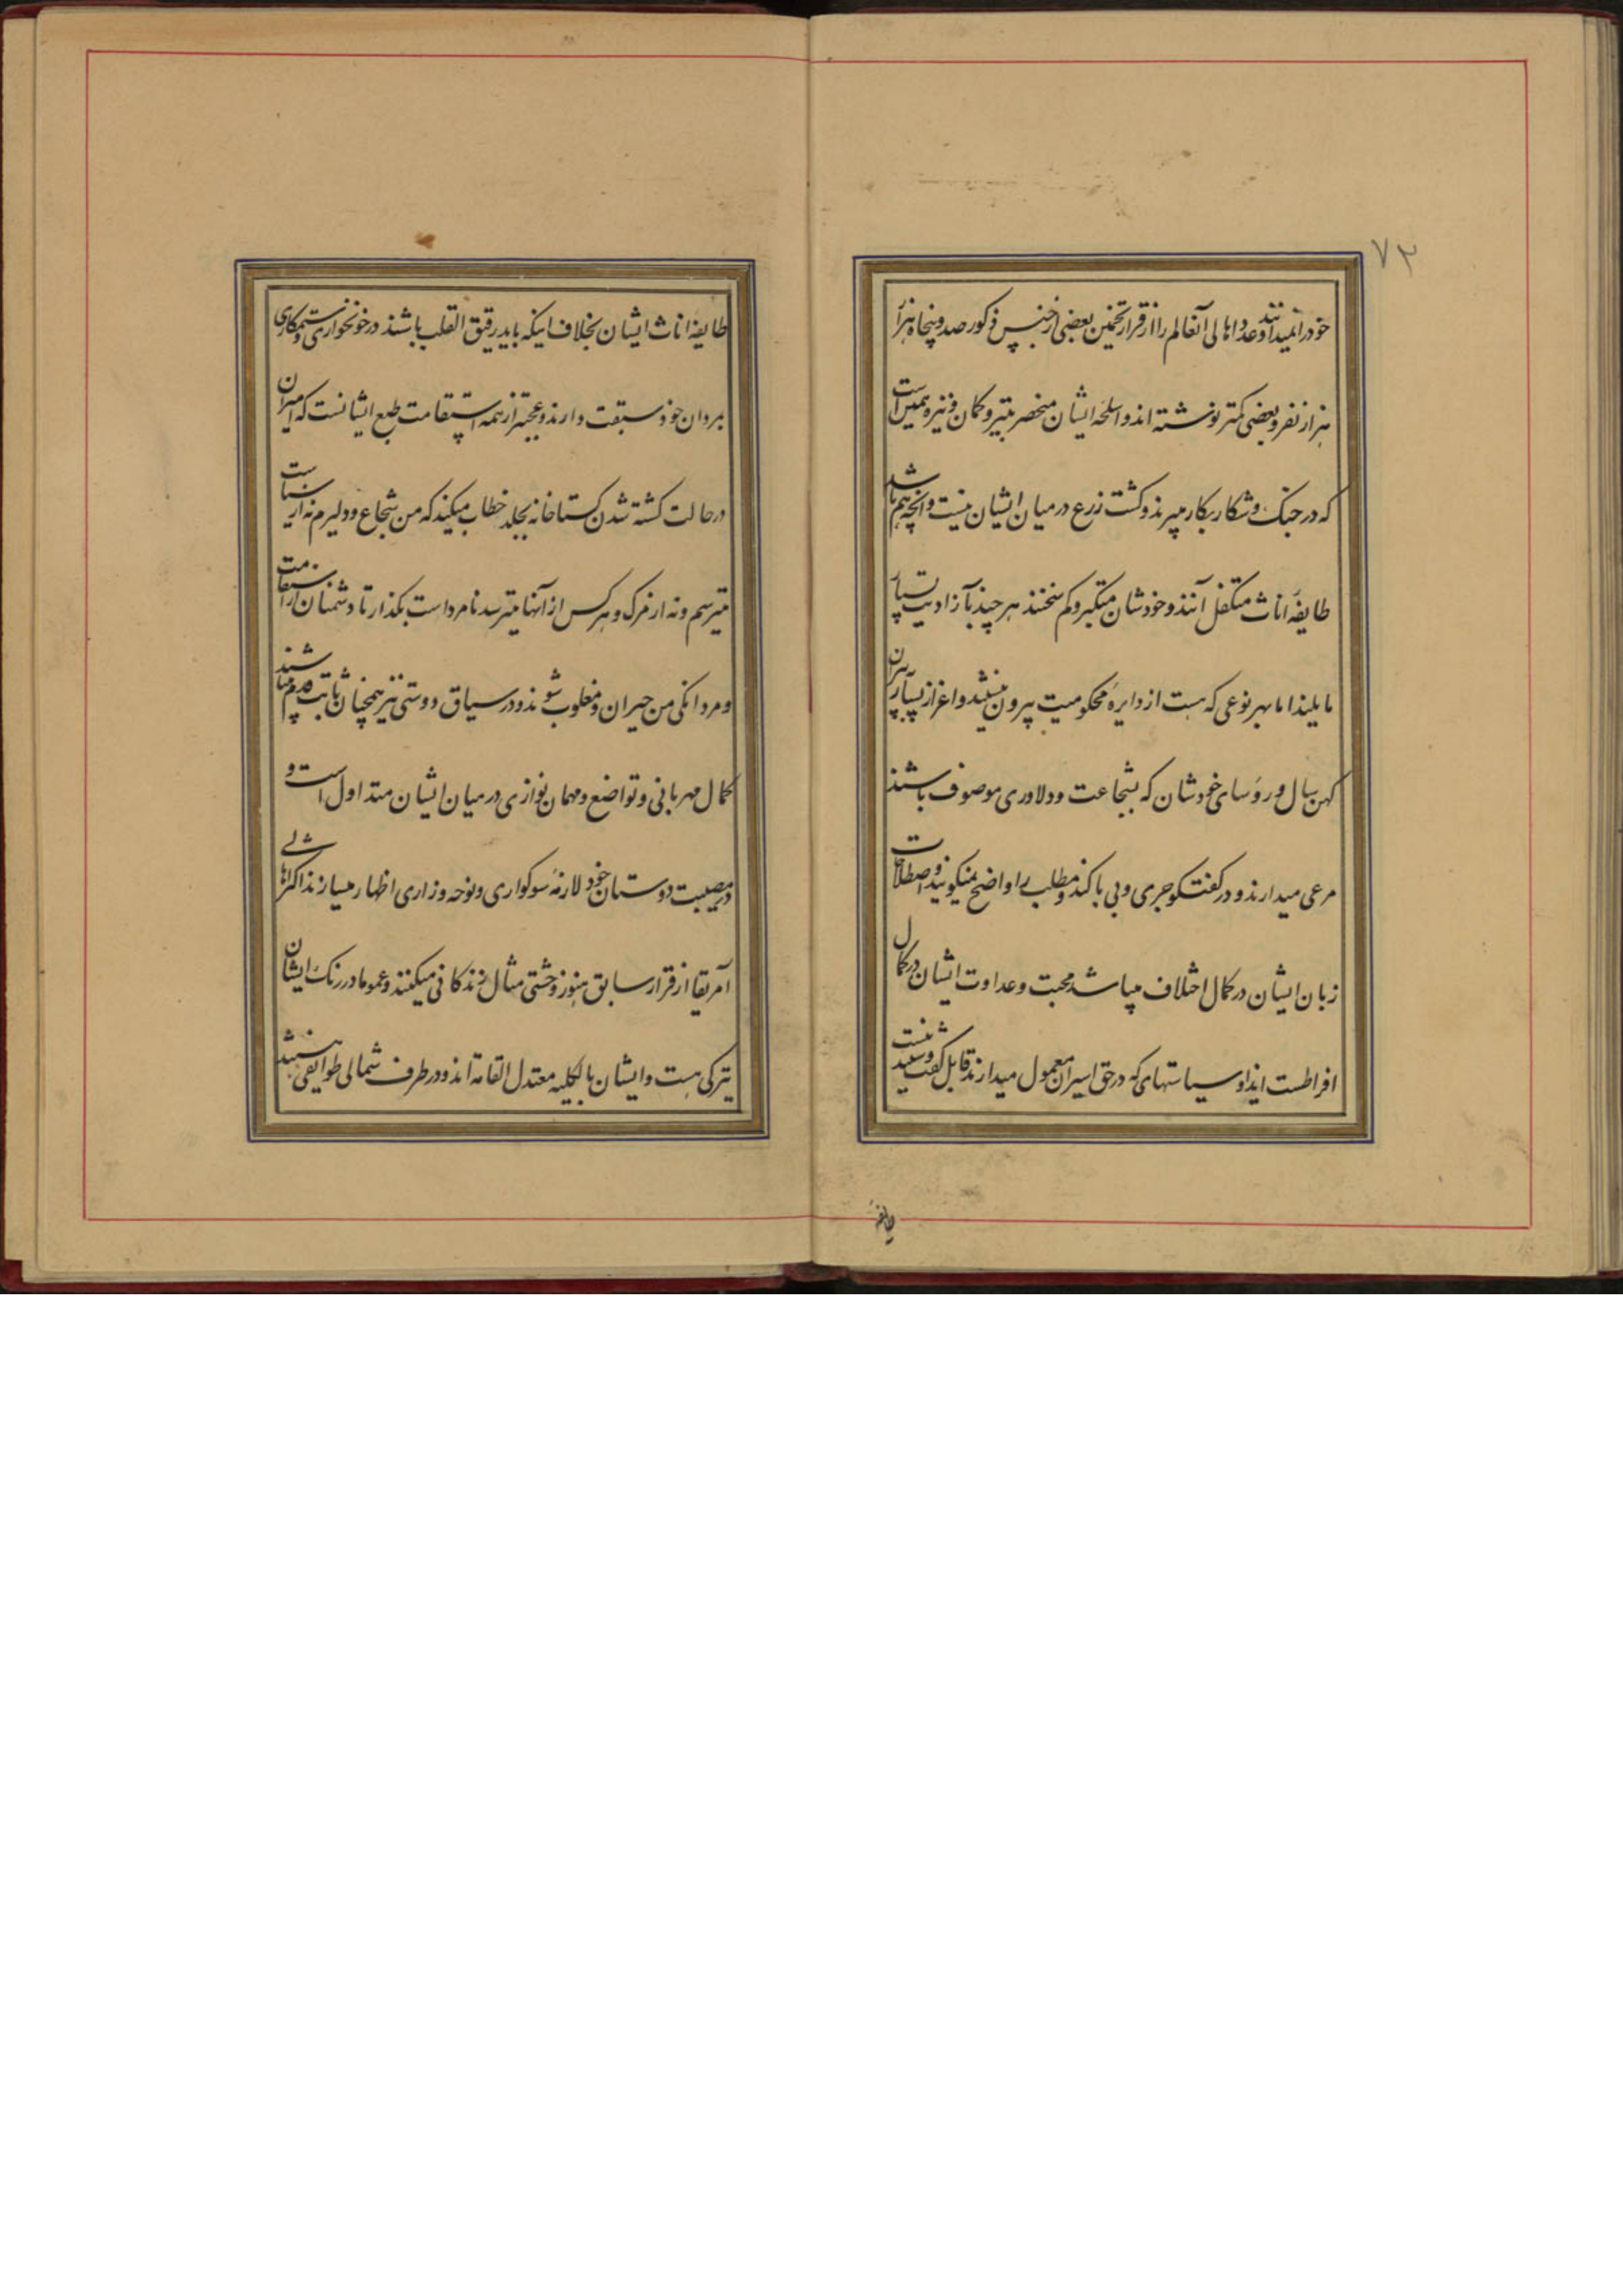 ۷۲
خود را نمیدانند و عدد اهالی آنعالم را از قرار تخمین بعضی از جنس ذکور صد و پنجاه هزار
هزار نفر و بعضی کمتر نوشته اند و اسلحه ایشان منحصر بتیر و کمان و نیزه همین است
که در جنک و شکار بکار میبرند و کشت زرع در میان ایشان نیست و آنچه هم باشد
طایفه اناث متکفل آنند و خودشان متکبر و کم سخنند هر چند بآزادیت بسیار
مایلند اما بهر نوعی که هست از دایره محکومیت بیرون نیستند و اعزاز بسیار پیران
کهن سال و رؤسای خودشان که بشجاعت و دلاوری موصوف باشند
مرعی میدارند و در کفتکو جری و بی باکند و مطلب را واضح نمیکویند و اصطلاحات
زبان ایشان در کمال اختلاف میباشد محبت و عداوت ایشان در کمال
افراطست ایذا و سیاستهای که در حق اسیران معمول میدارند قابل کفت و شنید نیست
طایفه
طایفه اناث ایشان بخلاف اینکه باید رقیق القلب باشند در خونخواری و ستمکاری
بمردان خود سبقت دارند و عجبتر از همه استقامت طبع ایشانست که اسیران
در حالت کشته شدن کستاخانه بجلاد خطاب میکنند که من شجاع و دلیرم نه از سیاست
میترسم و نه از مرک و هر کس از آنها میترسد نامرد است بکذار تا دشمنان از استقامت
و مردانکی من حیران و مغلوب شوند و در سیاق دوستی نیز همچنان ثابت قدم میباشند
کمال مهربانی و تواضع و مهمان نوازی در میان ایشان متداول است و
در مصیبت دوستان خود لازمه سوکواری و نوحه و زاری اظهار میسازند اکثر اهالی
آمریقا از قرار سابق هنوز وحشی مثال زندکانی میکنند و عموما در رنک ایشان
تیرکی هست و ایشان بالکلیه معتدل القامة اند و در طرف شمالی طوایفی هستند